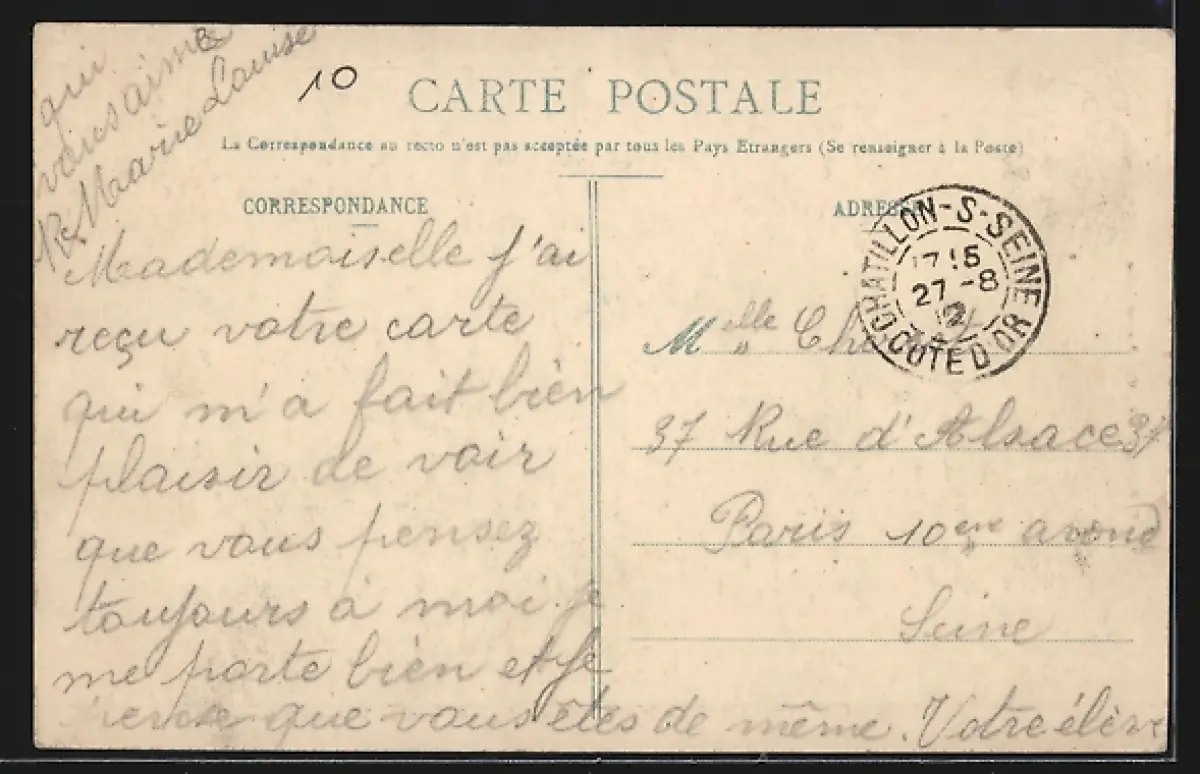 10
CARTE POSTALE
La Correspondance au recto n'est pas acceptée par tous les Pays Etrangers (Se renseigner à la Poste)
CORRESPONDANCE
Mademoiselle j'ai
reçu votre carte
qui m'a fait bien
plaisir de voir
que vous pensez
toujours à moi je
me porte bien et je
pense que vous êtes de même. Votre élève
qui
vous aime
Marie Louise
ADRESSE
CHATILLON-S-SEINE
17 15
27 -8
12
COTE D'OR
Melle
37 Rue d'Alsace 37
Paris 10eme arond
Seine